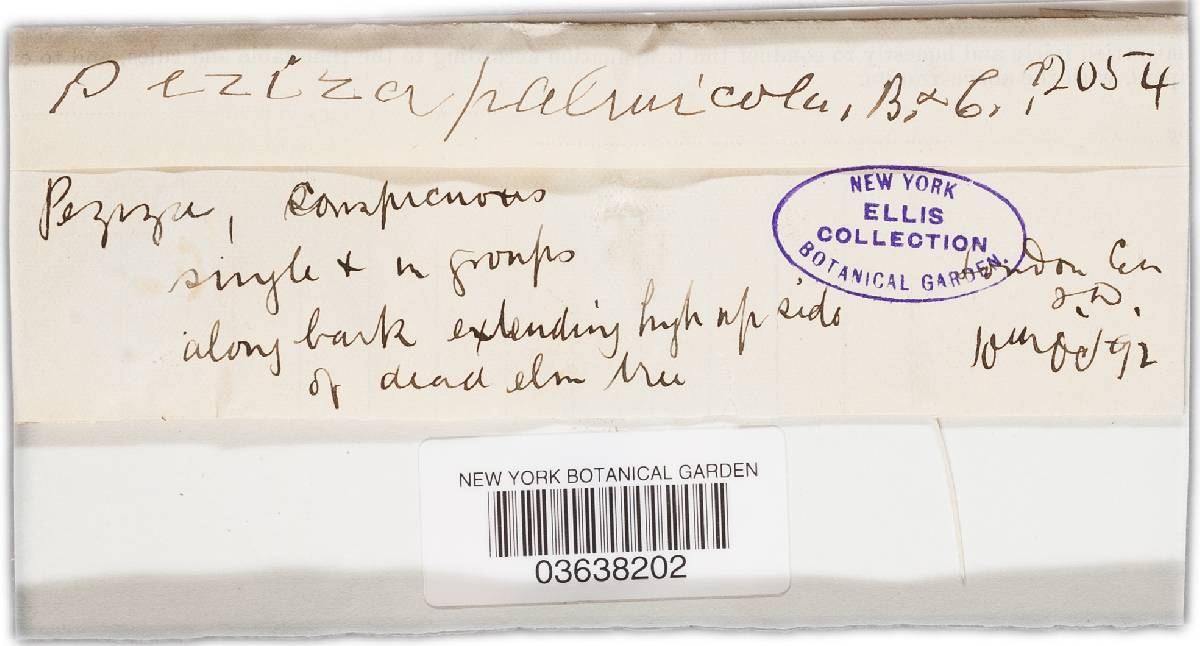 Peziza palmicola, B. & C. ? 2054
Peziza, conspicuous
single & in groups
along bark extending high up side
of dead elm tree
NEW YORK
ELLIS
COLLECTION
BOTANICAL GARDEN.
London Can
10th Oct 92
NEW YORK BOTANICAL GARDEN
03638202